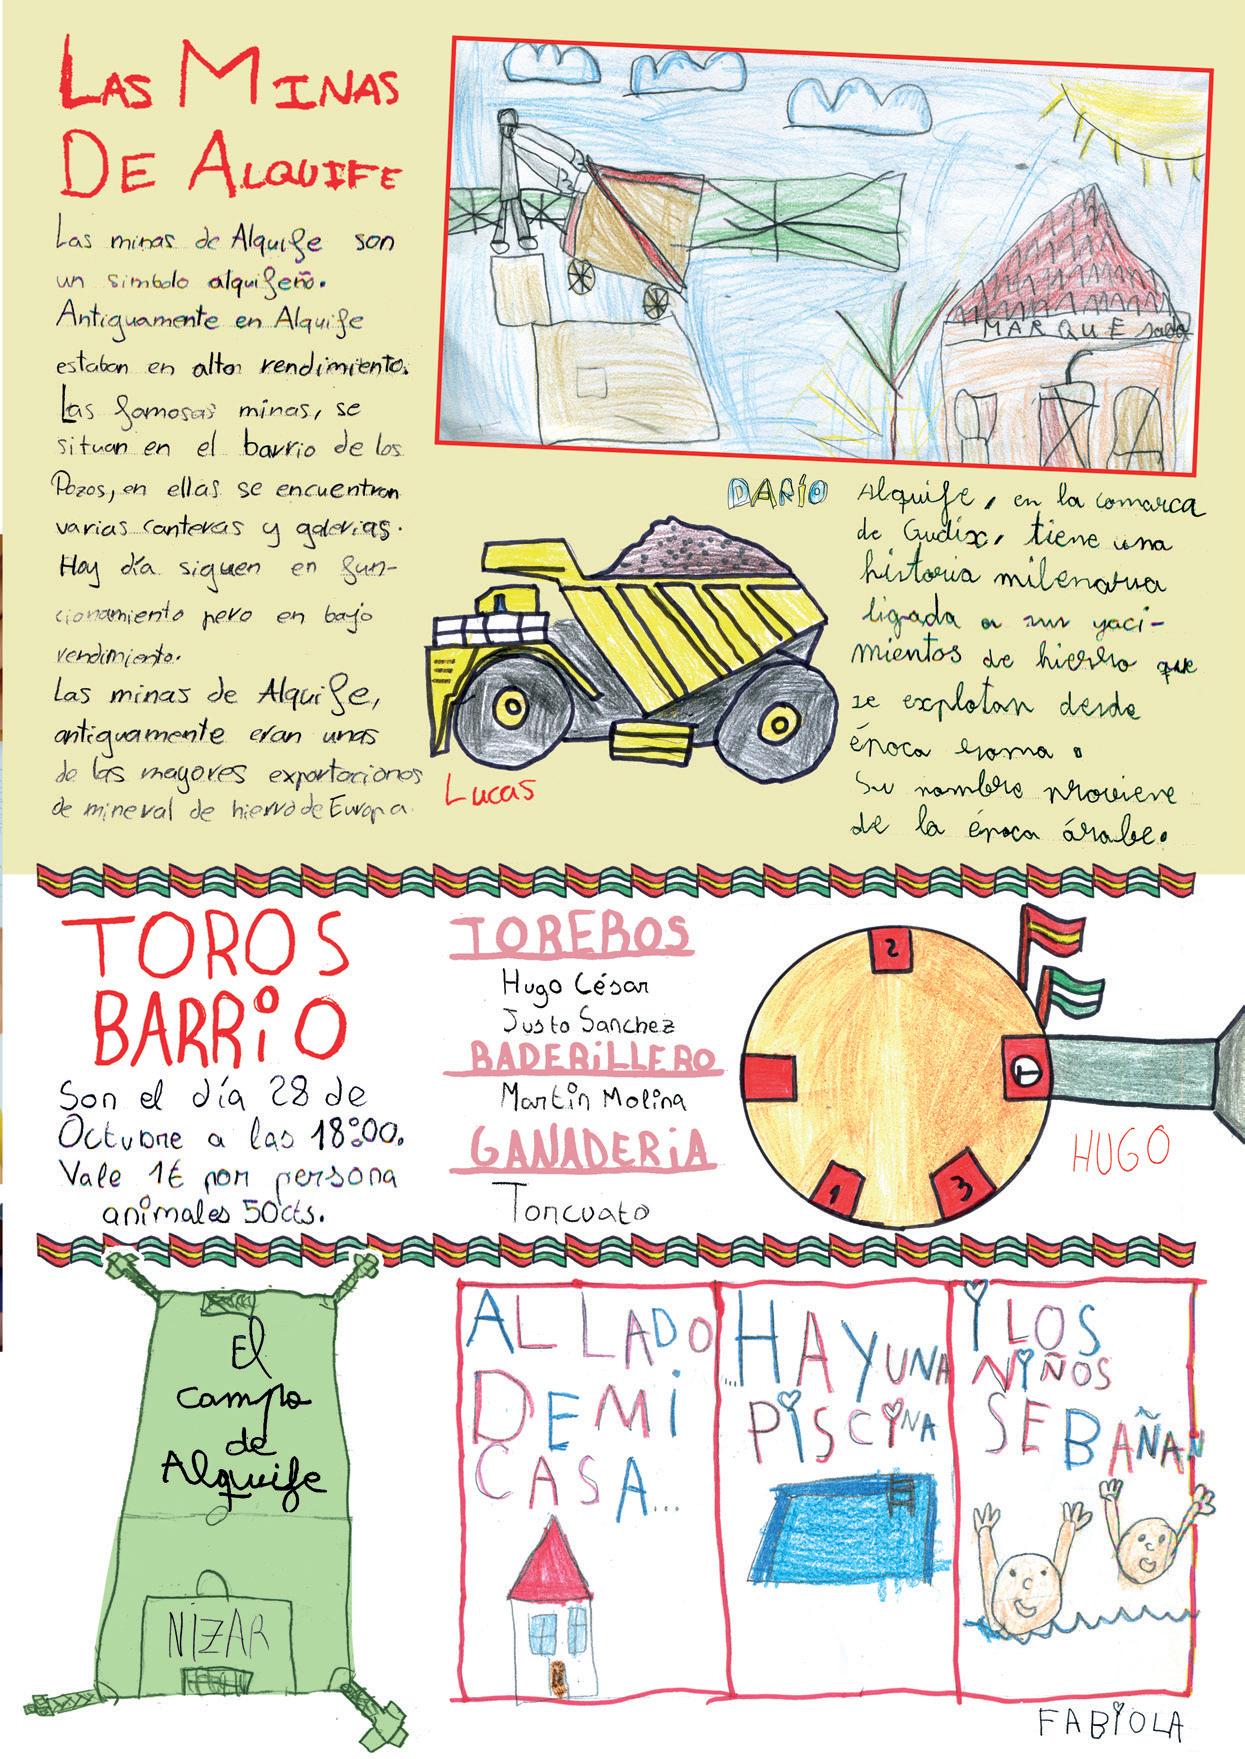 LAS MINAS
DE ALQUIFE
Las minas de Alquife son
un simbolo alquifeño.
Antiguamente en Alquife
estaban en alto rendimiento.
Las famosas minas, se
situan en el barrio de los
Pozos, en ellas se encuentran
varias canteras y galerias.
Hoy día siguen en fun-
cionamiento pero en bajo
rendimiento.
Las minas de Alquife,
antiguamente eran unas
de las mayores exportaciones
de mineral de hierro de Europa.
MARQUESADO
DARÍO
Lucas
Alquife, en la comarca
de Gudix, tiene una
historia milenaria
ligada a sus yaci-
mientos de hierro que
se explotan desde
época roma.
Su nombre proviene
de la época árabe.
TOROS
BARRIO
Son el día 28 de
Octubre a las 18:00.
Vale 1€ por persona
animales 50cts.
TOREROS
Hugo César
Justo Sanchez
BADERILLERO
Martín Molina
GANADERIA
Torcuato
2
T
1
3
HUGO
El
campo
de
Alquife
NIZAR
AL LADO
DE MI
CASA...
...HAY UNA
PISCINA
Y LOS
NIÑOS
SE BAÑAN
FABIOLA